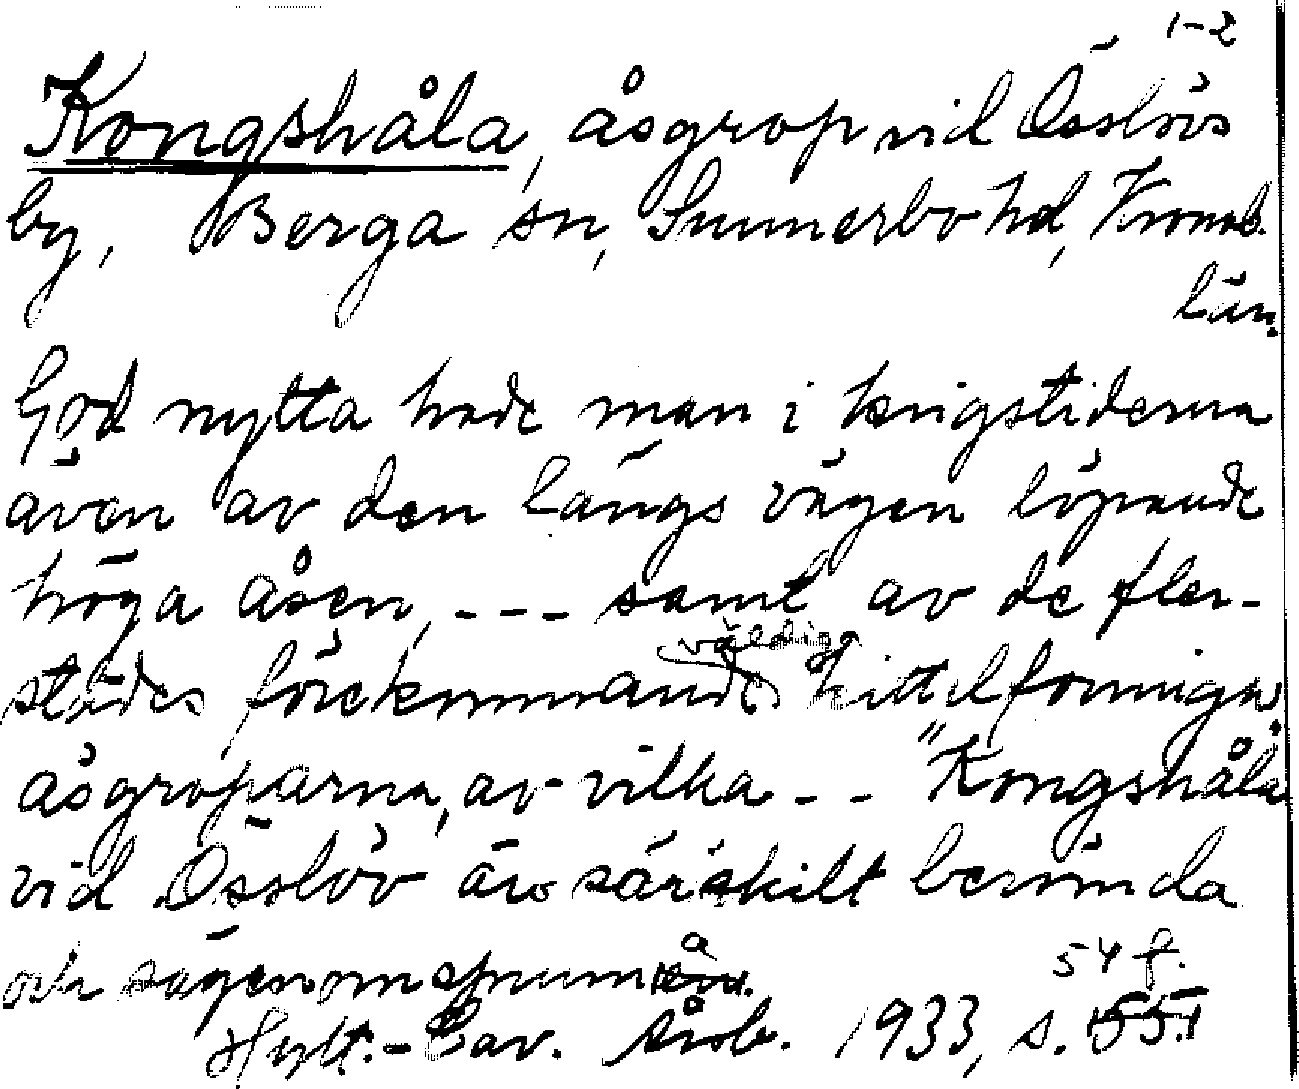 1-2
Kongshåla, åsgrop vid Össlövs
by, Berga sn, Sunnerbo hd, Kronob.
län.
God nytta hade man i krigstiderna
även av den längs vägen löpande
höga åsen, --- samt av de fler-
städes förekommande väldiga kittelformiga
åsgroparna, av vilka -- "Kongshåla
vid Össlöv äro särskilt berömda
och sägenomspunna
54 f.
Hylt.-Cav. Årsb. 1933, s.